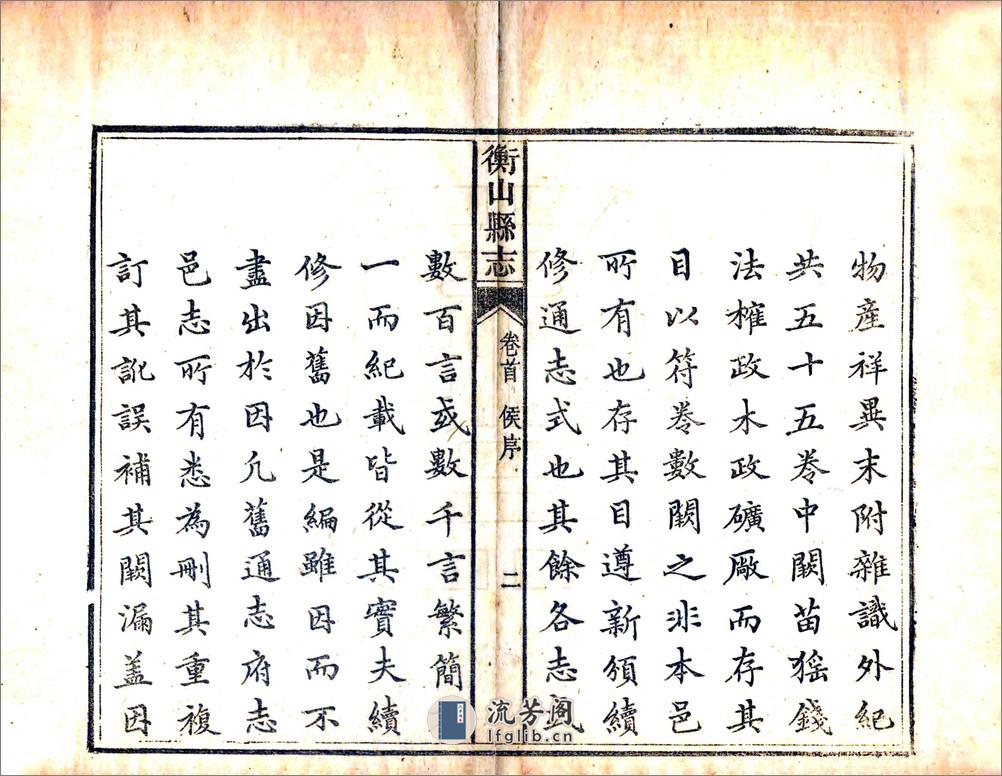 物產祥異末附雜識外紀
共五十五卷中闕苗猺錢
法榷政木政礦廠而存其
目以符卷數闕之非本邑
所有也存其目遵新頒續
修通志式也其餘各志或
衡山縣志
卷首 侯序
二
數百言或數千言繁簡不
一而紀載皆從其實夫續
修因舊也是編雖因而不
盡出於因凡舊通志府志
邑志所有悉為刪其重複
訂其訛誤補其闕漏蓋因
流芳阁
lfglib.cn